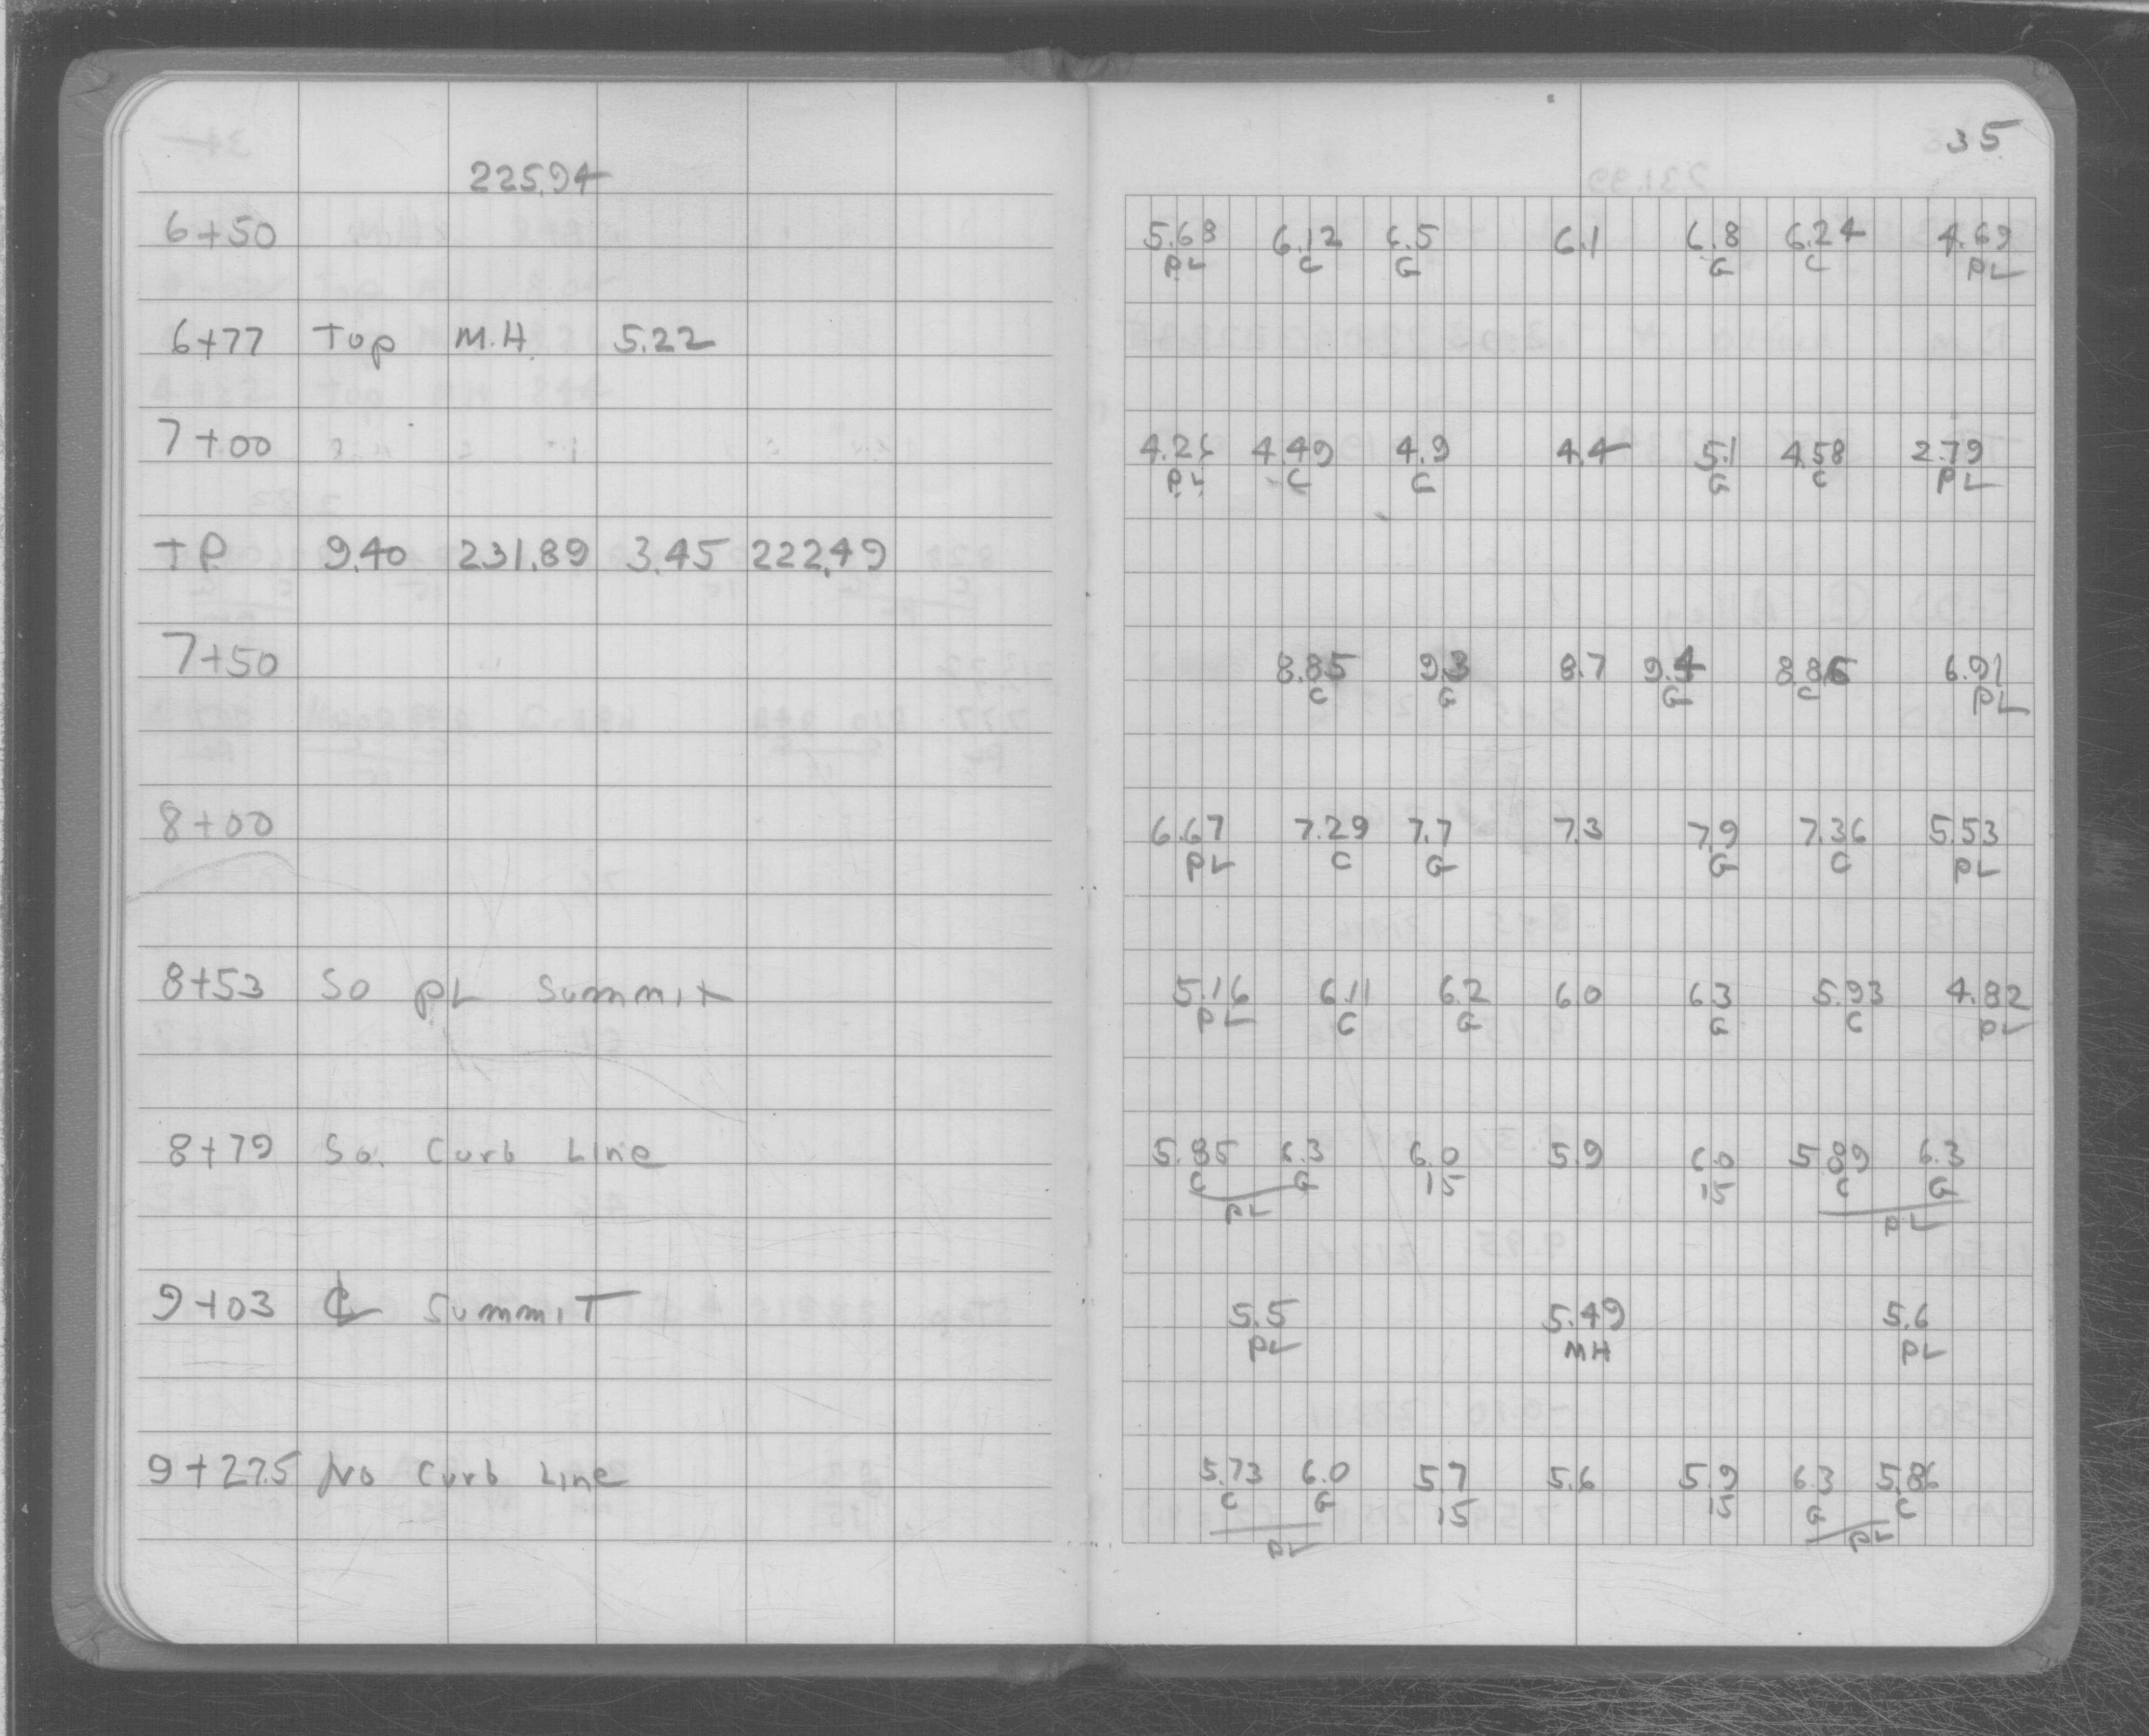 35
225.94
6+50 5.68 6.12 6.5 6.1 6.8 6.24 4.69
PL C G G C PL
6+77 Top M.H. 5.22
7+00 4.26 4.49 4.9 4.4 5.1 4.58 2.79
PL C G G C PL
TP 9.40 231.89 3.45 222.49
7+50 8.85 9.3 8.7 9.4 8.86 6.91
C G G C PL
8+00 6.67 7.29 7.7 7.3 7.9 7.36 5.53
PL C G G C PL
8+53 So PL Summit 5.16 6.11 6.2 6.0 6.3 5.93 4.82
PL C G G C PL
8+79 So. Curb Line 5.85 6.3 6.0 5.9 6.0 5.89 6.3
C G 15 15 C G
PL PL
9+03 ℄ Summit 5.5 5.49 5.6
PL MH PL
9+27.5 No Curb Line 5.73 6.0 5.7 5.6 5.9 6.3 5.86
C G 15 15 G C
PL PL